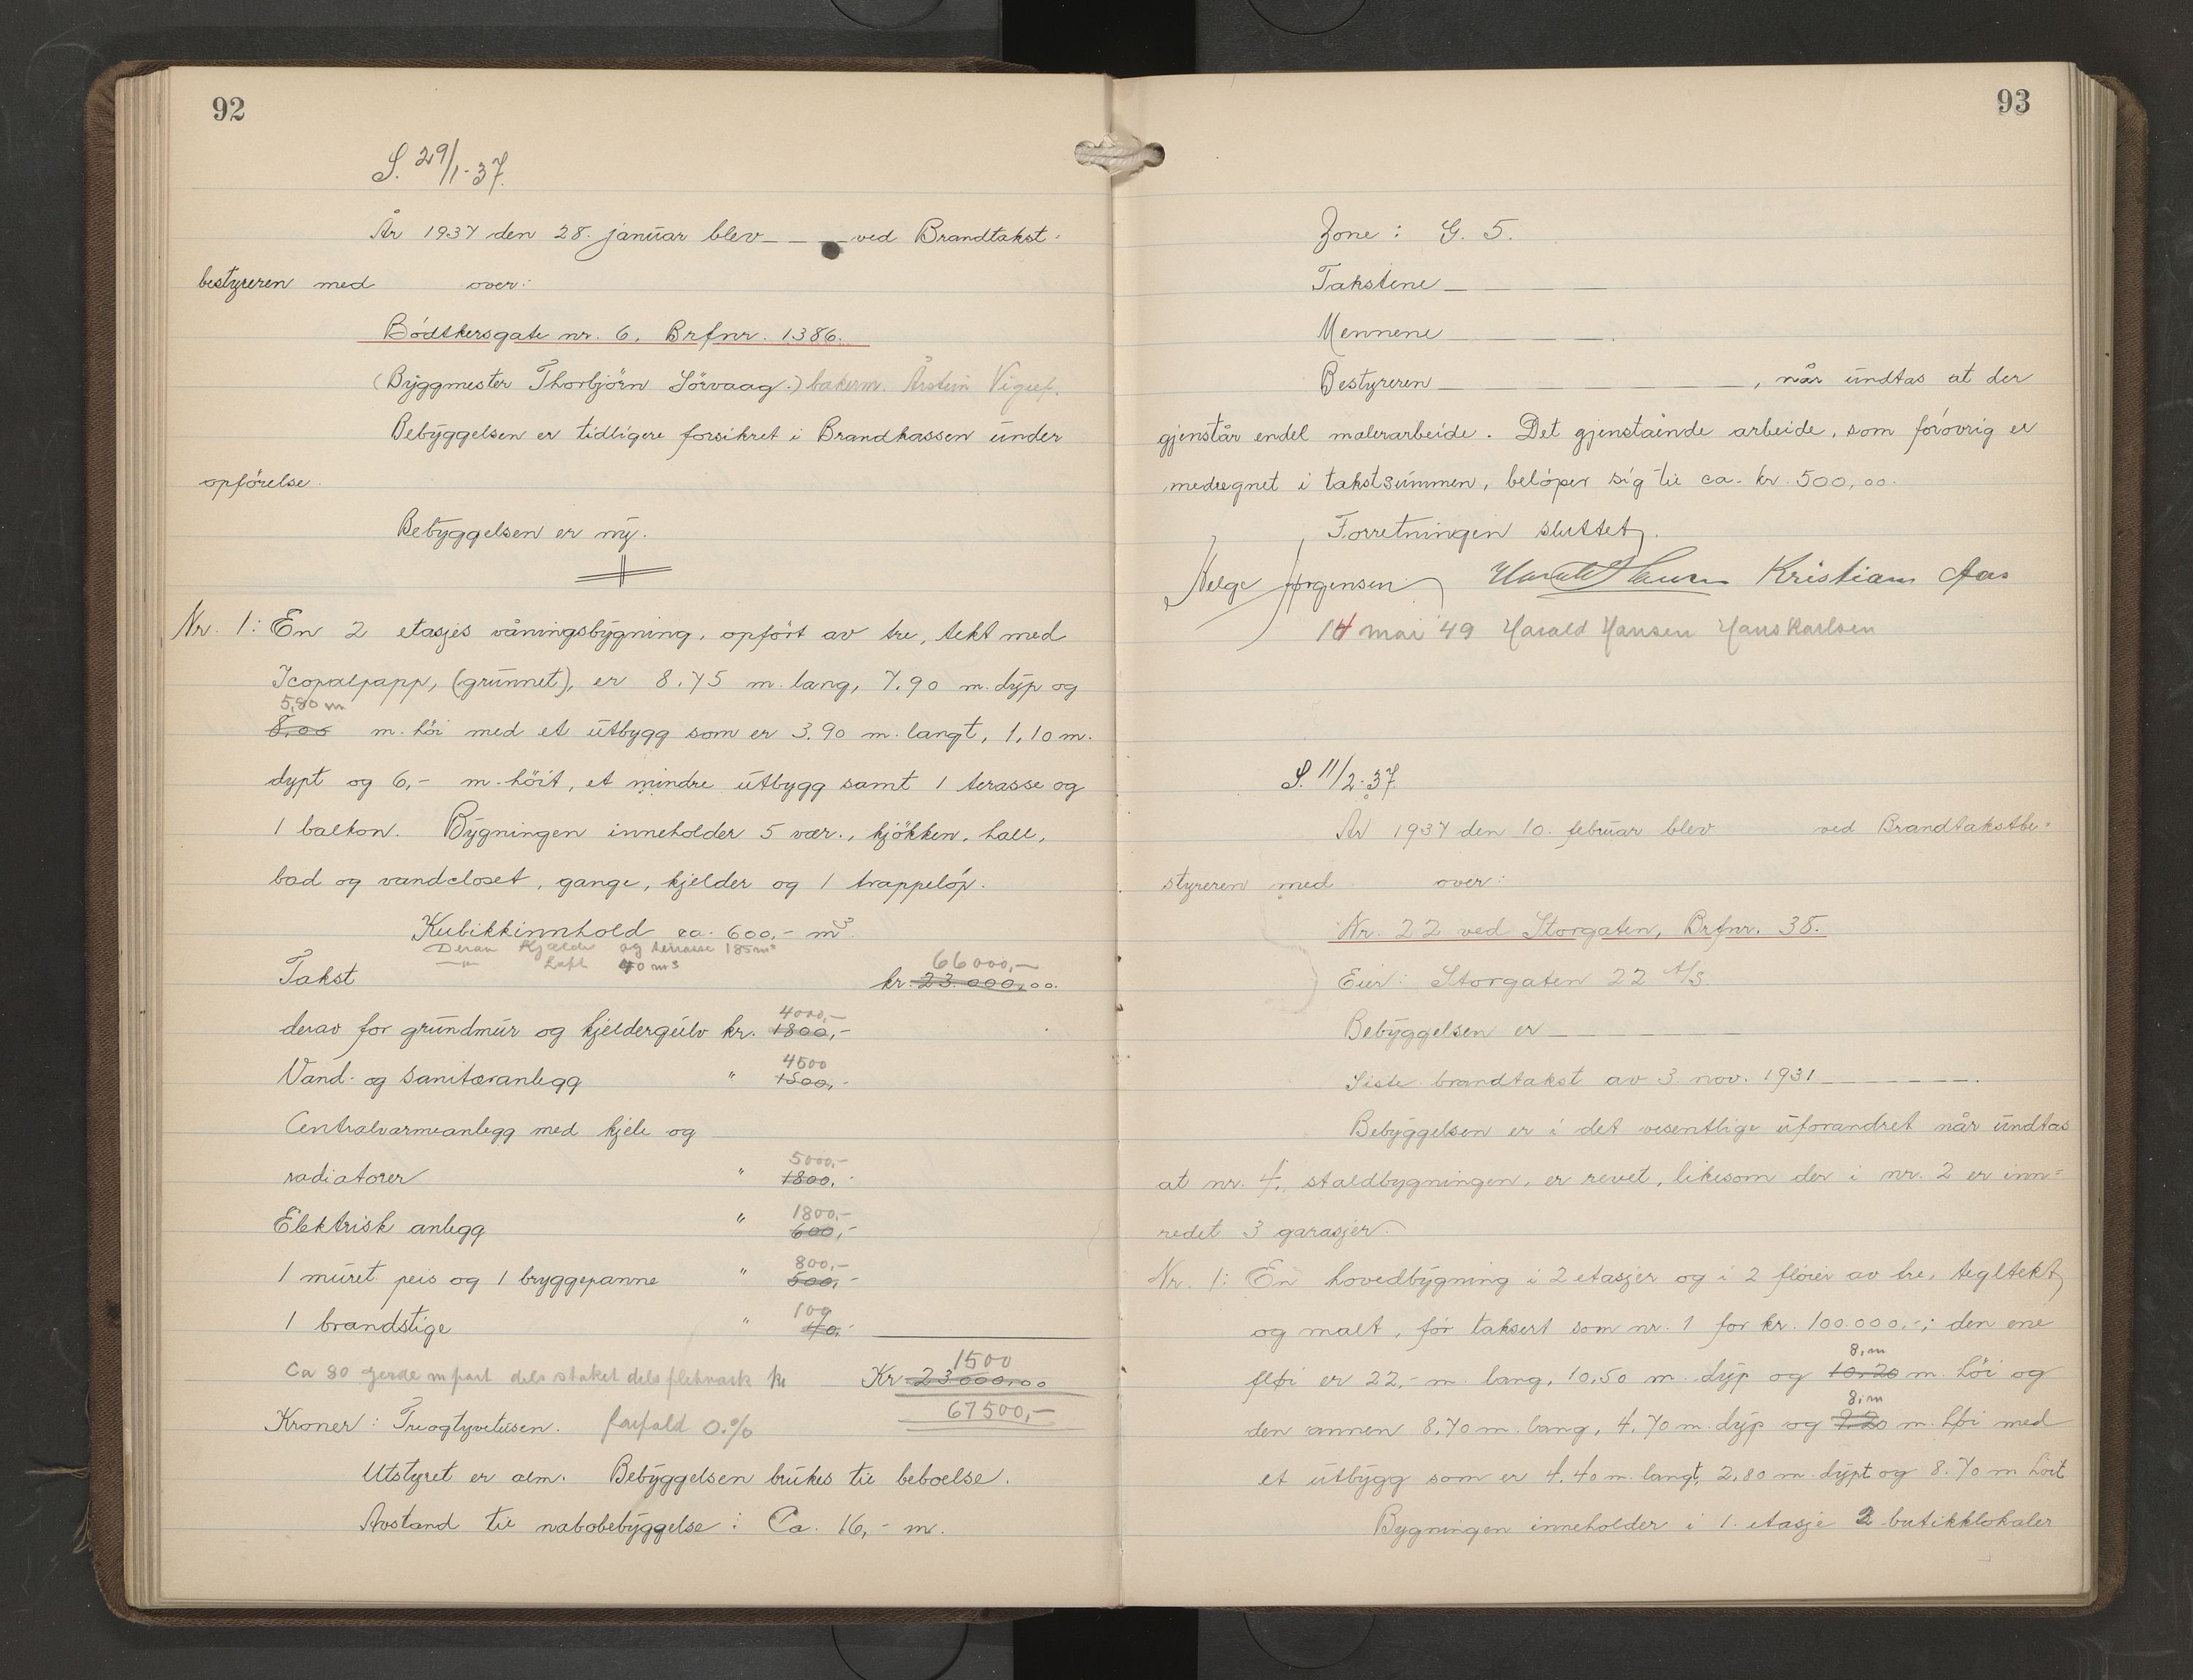 92
S. 29/1-37.
År 1937 den 28. januar blev_ _ _ ved Brandtakst=
bestyreren med over:
Bödtkersgate nr. 6, Brfnr. 1386.
(Byggmester Thorbjörn Sörvaag.) bakerm. Årstein
Bebyggelsen er tidligere forsikret i Brandkassen under
opförelse.
Bebyggelsen er ny.
Nr. 1: En 2 etasjes våningsbygning, opfört av tre, tekt med
Icopalpapp, (grunnet), er 8.75 m. lang, 7.90 m. dyp og
5,80 m
8,00 m. höi med et utbygg som er 3.90 m. langt, 1,10 m.
dypt og 6,- m. höit, et mindre utbygg samt 1 terasse og
1 balkon. Bygningen inneholder 5 vær., kjökken, hall,
bad og vandcloset, gange, kjelder og 1 trappelöp.
Kubikkinnhold ca. 600,- m³.
Derav Kjælder og terrasse 185 m³
—"— Loft 40 m³
66000,-
Takst kr. 23.000,00.
4000,-
derav for grundmur og kjeldergulv kr. 1800,-
4500
Vand- og sanitæranlegg " 1500,-
Centralvarmeanlegg med kjele og
5000,-
radiatorer " 1800,-
1800,-
Elektrisk anlegg " 600,-
800,-
1 muret peis og 1 bryggepanne " 500,-
100
1 brandstige " 40,-
1500
Ca 80 gjerde dels staket dels fletverk kr Kr. 23000,00
67500,-
Kroner: Treogtyvetusen. forfald 0.%
Utstyret er alm. Bebyggelsen brukes til beboelse.
Avstand til nabobebyggelse: Ca. 16,- m.
93
Zone: G. 5.
Takstene_ _______
Mennene_________.
Bestyreren_______________, når undtas at der
gjenstår endel malerarbeide. Det gjenstående arbeide, som foróvrig er
medregnet i takstsummen, belöper sig til ca. kr. 500,00.
Forretningen sluttet.
Helge Jørgensen Harald Hansen Kristian Aas
14 mai '49 Harald Hansen Hans Karlsen
S. 11/2-37.
År 1937 den 10. februar blev ved Brandtakstbe=
styreren med over:
Nr. 22 ved Storgaten, Brfnr. 38.
Eier: Storgaten 22 A/S
Bebyggelsen er_________
Siste brandtakst av 3. nov. 1931_ _ _ _ _ _ _.
Bebyggelsen er i det vesentlige uforandret når undtas
at nr. 4, staldbygningen, er revet, likesom der i nr. 2 er inn=
redet 3 garasjer.
Nr. 1: En hovedbygning i 2 etasjer og i 2 flöier av tre, tegltekt
og malt, för taksert som nr. 1 for kr. 100.000,-; den ene
8,m
flöi er 22,- m. lang, 10,50 m. dyp og 10.20 m. höi og
8,m
den annen 8,70 m. lang, 4,70 m. dyp og 9.20 m. höi med
et utbygg som er 4.40 m. langt, 2,80 m. dypt og 8.70 m höit
Bygningen inneholder i 1. etasje 2 butikklokaler